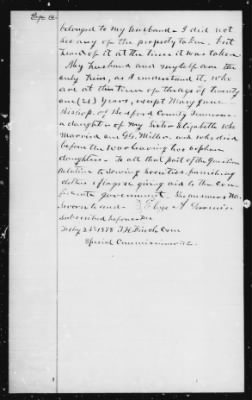 belonged to my husband. I did not
see any of the property taken, but
heard of it at the time it was taken
My husband and myself are the
only heirs, as I understand it, who
are at this time of the age of twenty
one (21) years, except Mary Jane
Bishop, of Bedford County Tennessee
a daughter of my sister Elizabeth who
Married one G.G. Miller and who died
before the War leaving her orphan
daughter. To all that part of the Question
relative to sewing societies, furnishing
clothes & flags or giving aid to the Con-
federate government. She answers No.
Sworn to and
Subscribed before me
July 25 1878
Special Commissioner